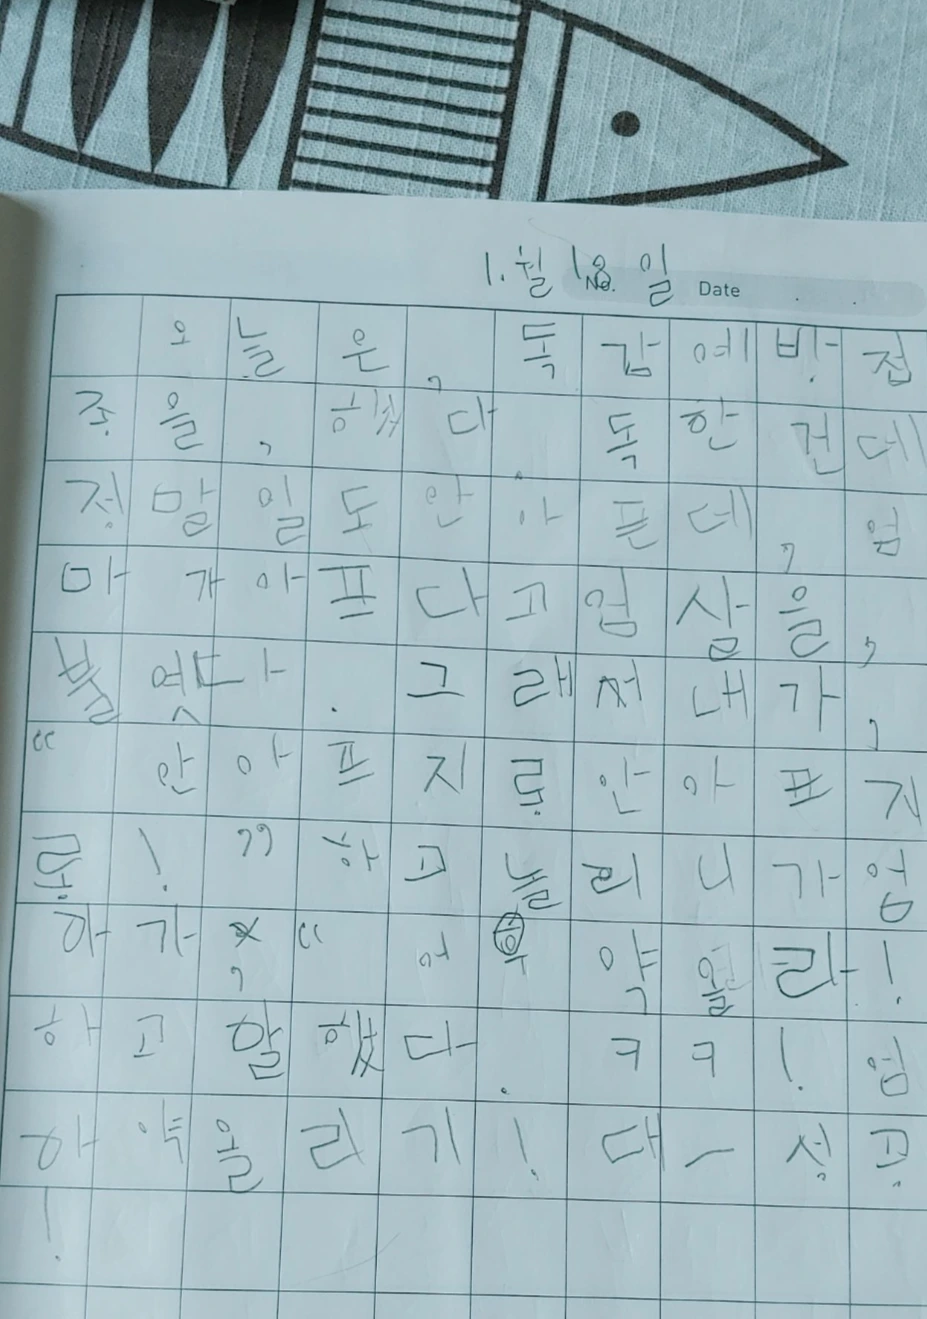 1.월 18일
No. Date . .
오늘은, 독감예방접
종을, 했다. 독한건데
정말일도안아픈데, 엄
마가아프다고엄살을,
불엿다. 그래서내가,
“안아프지롱안아프지
롱!”하고놀리니가엄
마가, “어 약올라!
하고말했다. ㅋㅋ! 엄
마약올리기! 대-성공
!